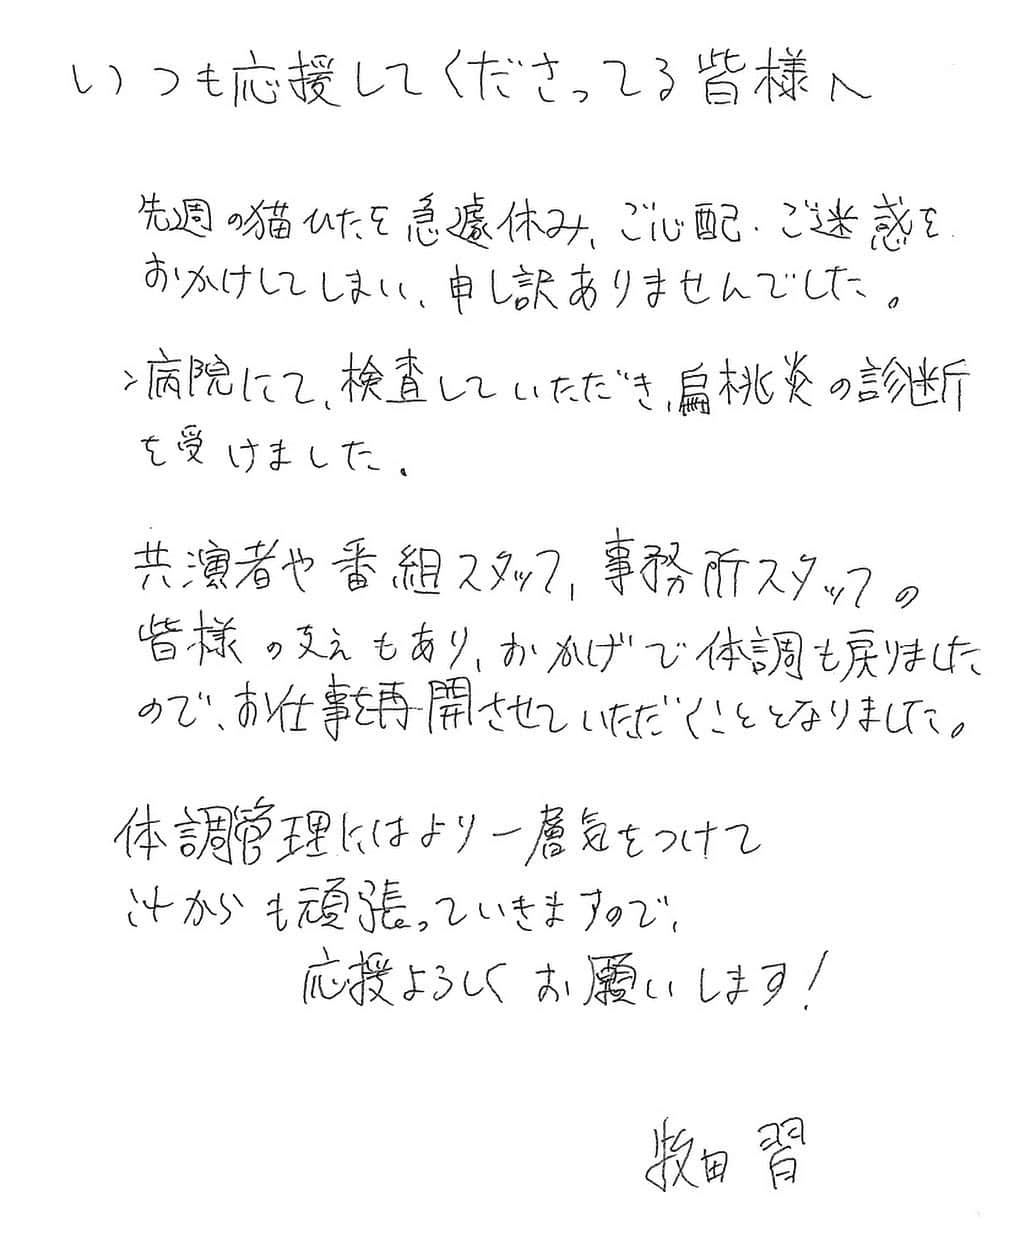 いつも応援してくださってる皆様へ
先週の猫ひたを急遽休み、ご心配・ご迷惑を
おかけしてしまい、申し訳ありませんでした。
病院にて、検査していただき、扁桃炎の診断
を受けました。
共演者や番組スタッフ、事務所スタッフの
皆様の支えもあり、おかげで体調も戻りました
ので、お仕事を再開させていただくこととなりました。
体調管理にはより一層気をつけて
これからも頑張っていきますので、
応援よろしくお願いします!
牧田習